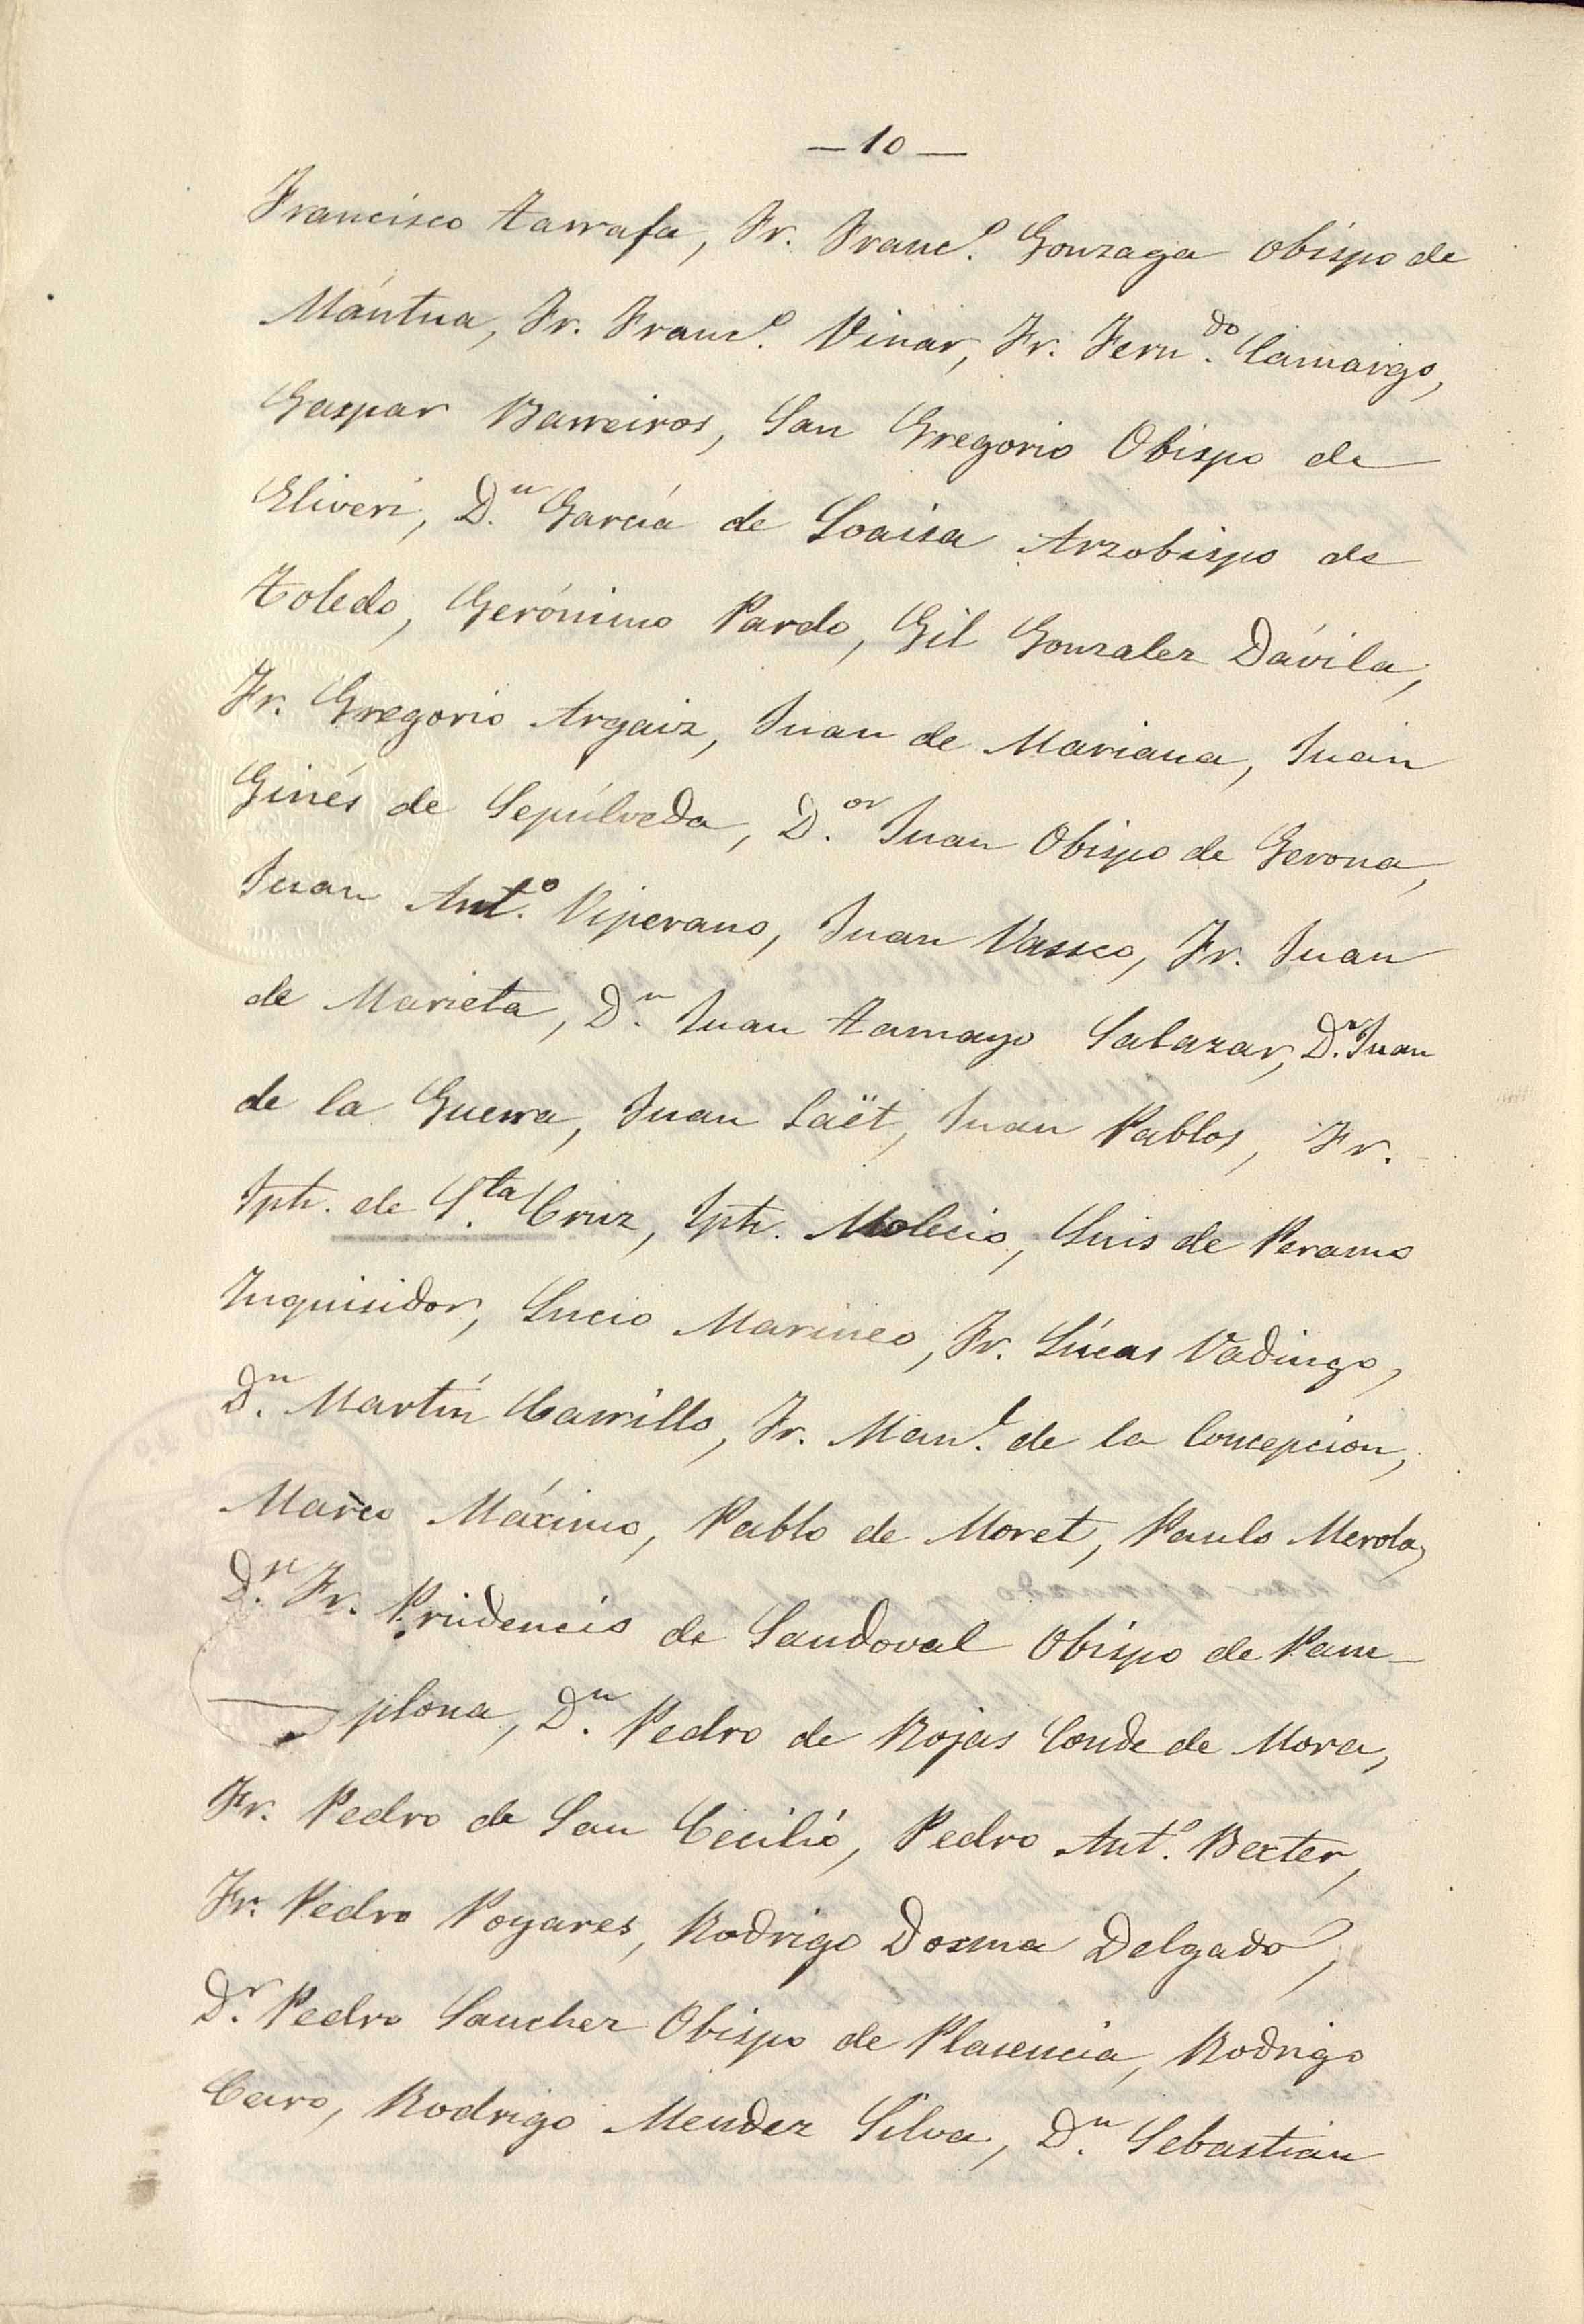 — 10 —
Francisco Tarrafa, Fr. Franc.º Gonzaga obispo de
Mántua, Fr. Franc.º Vinar, Fr. Fern.do Camargo,
Gaspar Barreiros, San Gregorio Obispo de
Eliveri, D.n García de Loaisa Arzobispo de
Toledo, Gerónimo Pardo, Gil Gonzalez Dávila,
Fr. Gregorio Argaiz, Juan de Mariana, Juan
Ginés de Sepúlveda, D.or Juan Obispo de Gerona,
Juan Ant.º Viperano, Juan Vasseo, Fr. Juan
de Marieta, D.n Juan Tamayo Salazar, D.n Juan
de la Guerra, Juan Laët, Juan Pablos, Fr.
Jph. de S.ta Cruz, Jph. Molecio, Luis de Peramo
Inquisidor, Lucio Marineo, Fr. Lúcas Vadingo,
D.n Martín Carrillo, Fr. Man.l de la Concepcion,
Marco Máximo, Pablo de Moret, Paulo Merola,
D.n Fr. Prudencio de Sandoval Obispo de Pam-
plona, D.n Pedro de Rojas Conde de Mora,
Fr. Pedro de San Cecilio, Pedro Ant.º Bexter,
Fr. Pedro Poyares, Rodrigo Dosma Delgado,
D.r Pedro Sanchez Obispo de Plasencia, Rodrigo
Caro, Rodrigo Mendez Silva, D.n Sebastian